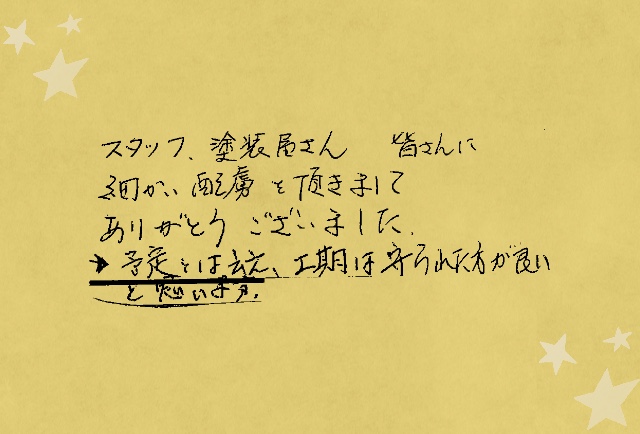 スタッフ、塗装屋さん 皆さんに
細かい配慮を頂きまして
ありがとうございました.
→予定とは云え、工期は守られた方が良い
と思います.